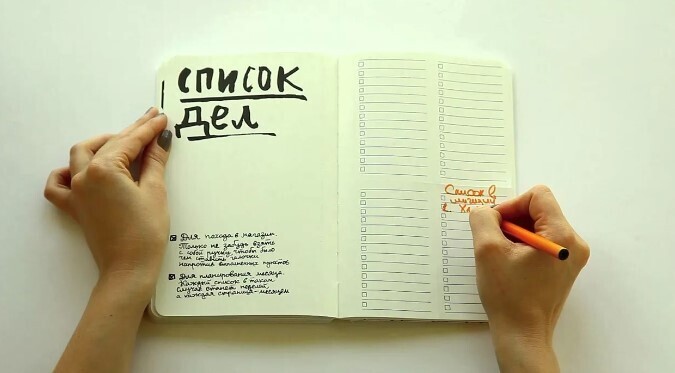 список
дел
Для похода в магазин.
Только не забудь взять
с собой ручку, чтобы было
чем ставить галочки
напротив выполненных пунктов
Для планирования месяца.
Каждый список в таком
случае станет неделей,
а каждая страница-месяцем
Список в